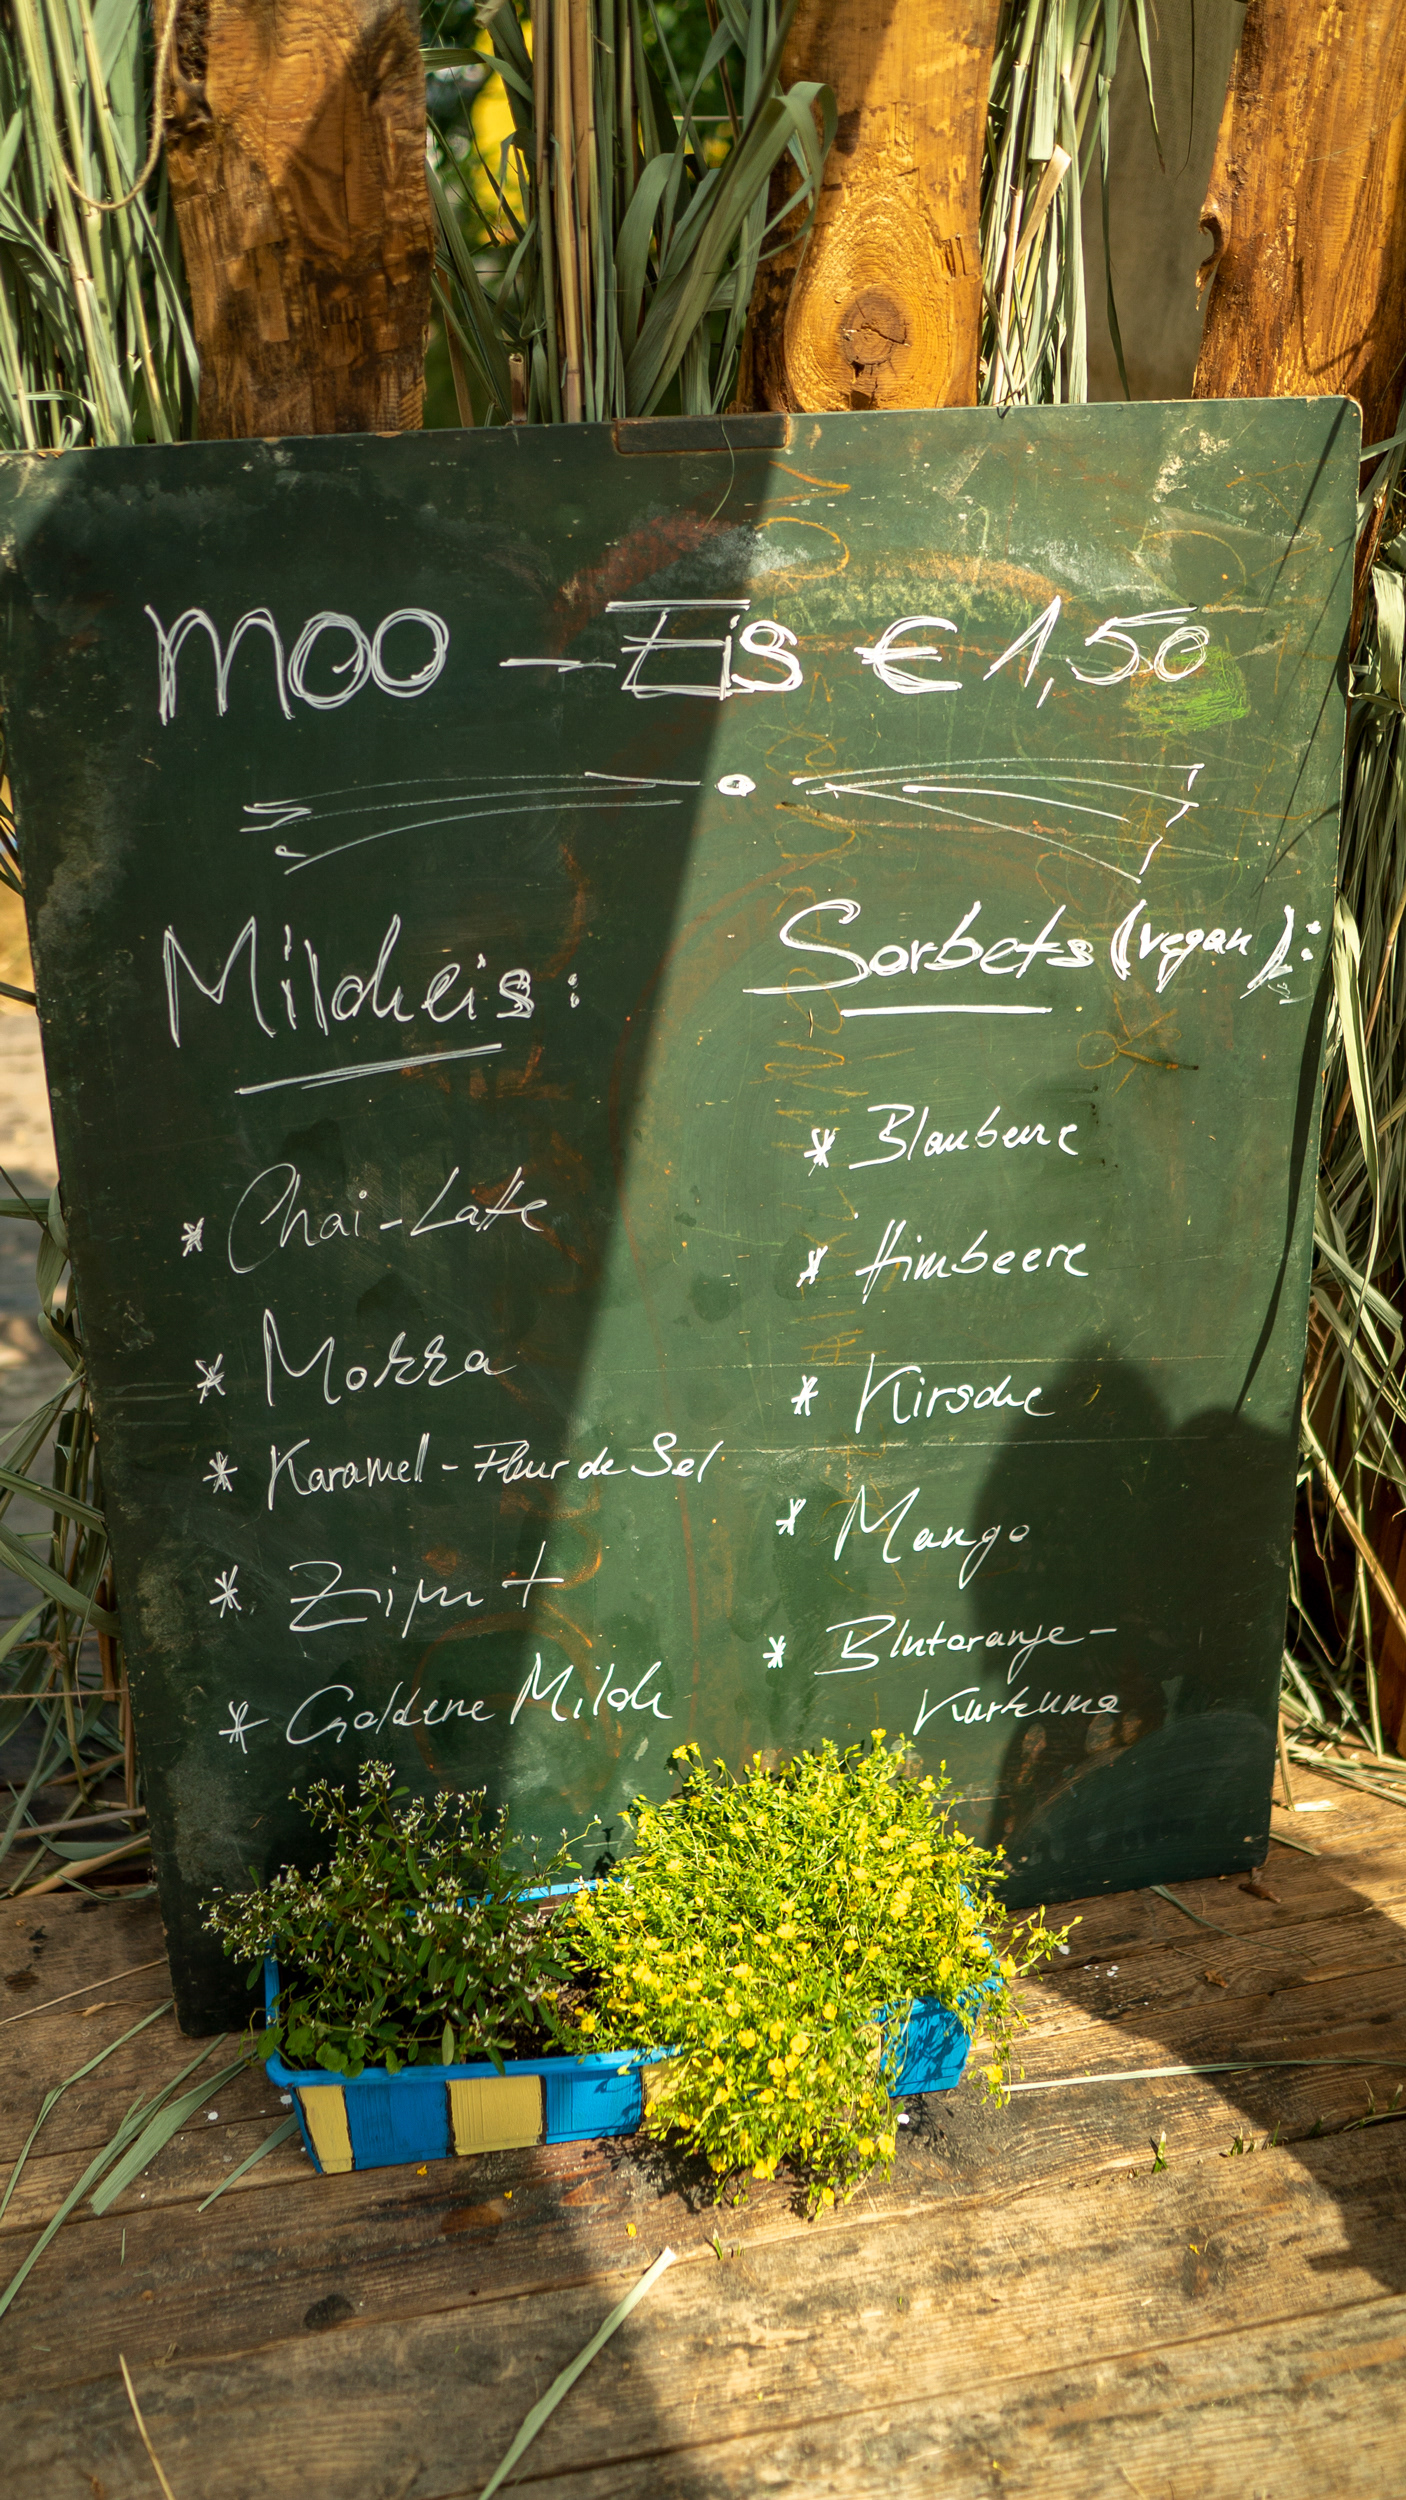 MOO – Eis € 1,50
Milcheis:
* Chai-Latte
* Mokka
* Karamel - Fleur de Sel
* Zimt
* Goldene Milch
Sorbets (vegan):
* Blaubeere
* Himbeere
* Kirsche
* Mango
* Blutoranje-
Kurkuma